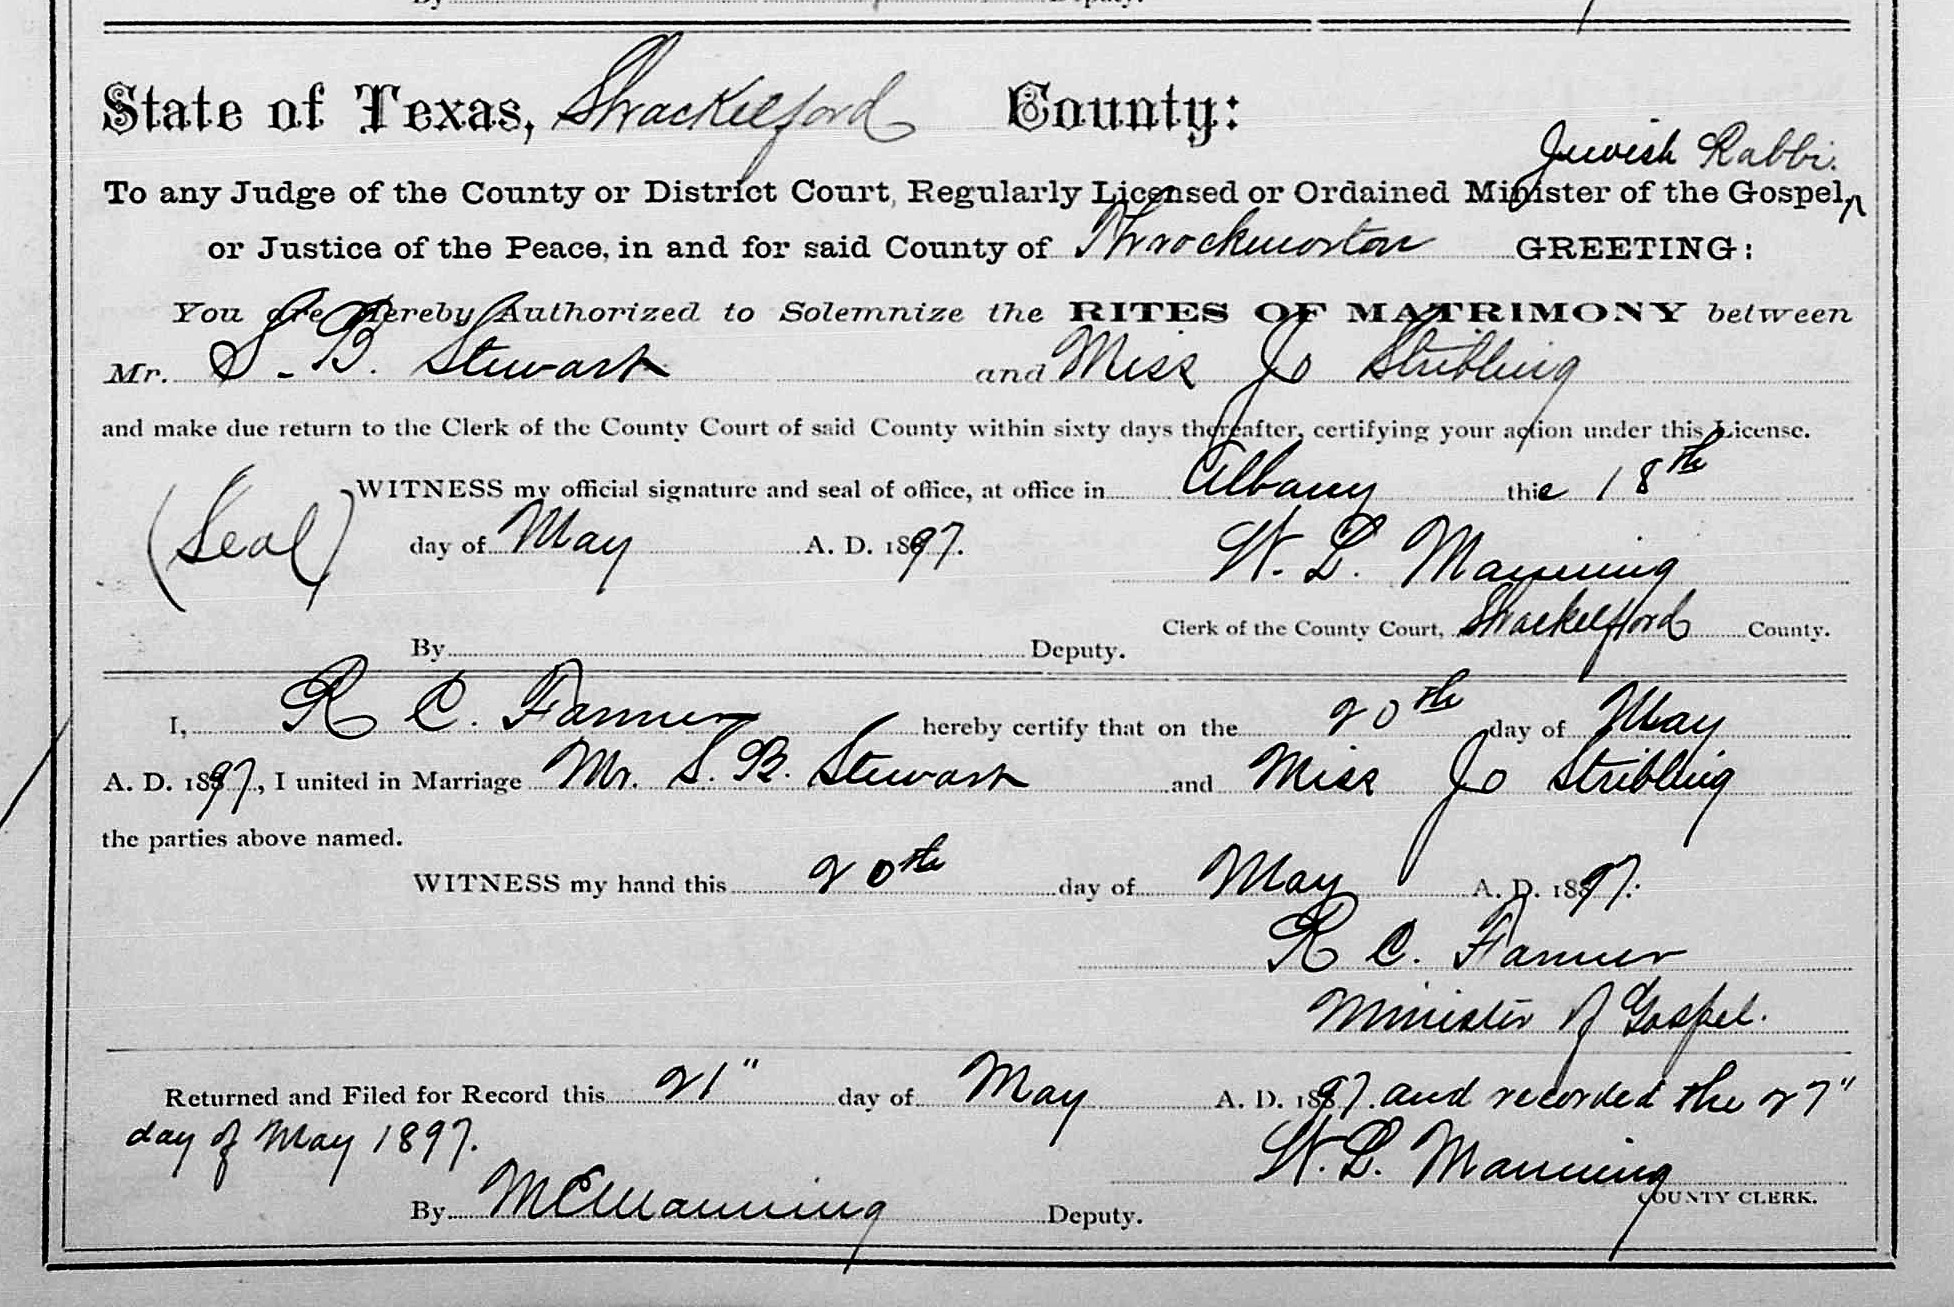 By Deputy.
State of Texas, Shackelford County:
Jewish Rabbi.
To any Judge of the County or District Court, Regularly Licensed or Ordained Minister of the Gospel, ^
or Justice of the Peace, in and for said County of Throckmorton GREETING:
You are Hereby Authorized to Solemnize the RITES OF MATRIMONY between
Mr. S. B. Stewart and Miss Jo Stribling
and make due return to the Clerk of the County Court of said County within sixty days thereafter, certifying your action under this License.
WITNESS my official signature and seal of office, at office in Albany the 18th
(Seal) day of May A. D. 1897.
W. L. Manning
Clerk of the County Court, Shackelford County.
By Deputy.
I, R C. Farmer hereby certify that on the 20th day of May
A. D. 1897, I united in Marriage Mr. S. B. Stewart and Miss Jo Stribling
the parties above named.
WITNESS my hand this 20th day of May A. D. 1897.
R C. Farmer
Minister of Gospel.
Returned and Filed for Record this 21" day of May A. D. 1897. and recorded the 27"
day of May 1897.
W. L. Manning
COUNTY CLERK.
By M E Manning Deputy.